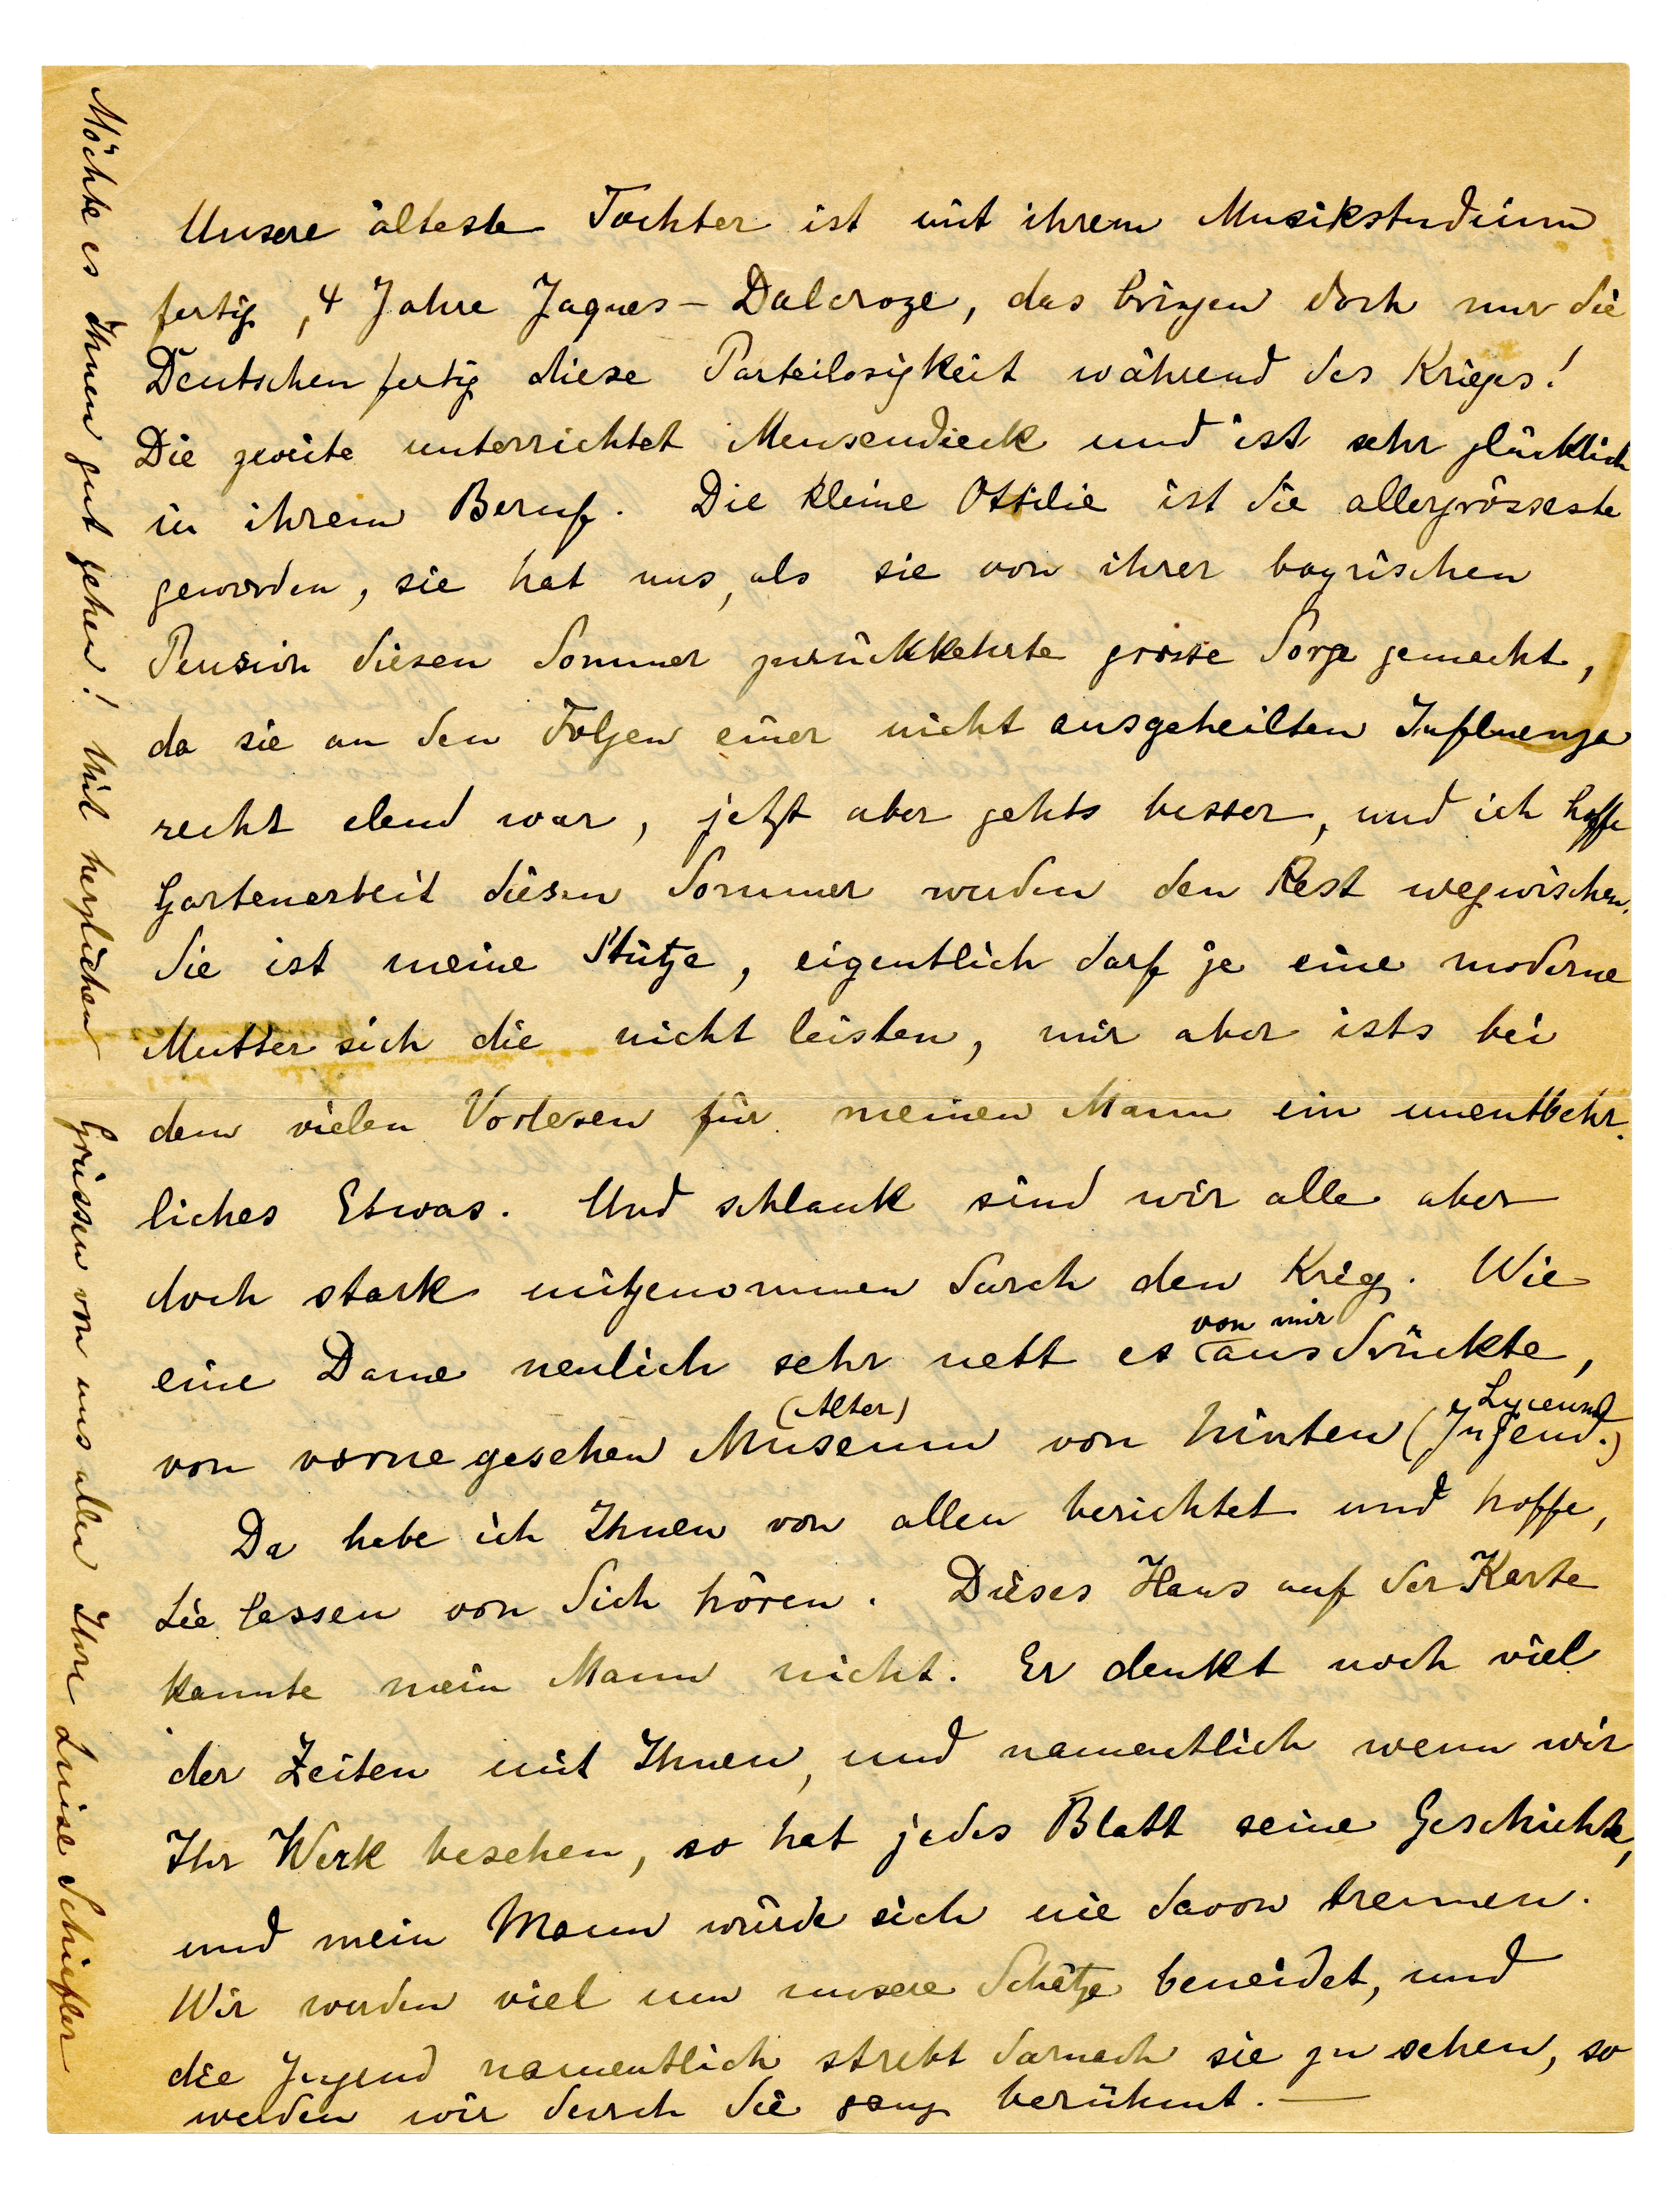 Unsere älteste Tochter ist mit ihrem Musikstudium
fertig, 4 Jahre Jaques-Dalcroze, das bringen doch nur die
Deutschen fertig diese Parteilosigkeit während des Krieges!
Die zweite unterrichtet Mensendieck und ist sehr glücklich
in ihrem Beruf. Die kleine Ottilie ist die allergrösseste
geworden, sie hat uns, als sie von ihrer bayrischen
Pension diesen Sommer zurückkehrte grosse Sorge gemacht,
da sie an den Folgen einer nicht ausgeheilten Influenza
recht elend war, jetzt aber gehts besser, und ich hoffe
Gartenarbeit diesen Sommer werden den Rest wegwischen.
Sie ist meine Stütze, eigentlich darf je eine moderne
Mutter sich die nicht leisten, mir aber ists bei
dem vielen Vorlesen für meinen Mann ein unentbehr-
liches Etwas. Und schlank sind wir alle aber
doch stark mitgenommen durch den Krieg. Wie
eine Dame neulich sehr nett es von mir ausdrückte,
von vorne gesehen Museum (Alter) von hinten Lyceum (Jugend.)
Da habe ich Ihnen von allen berichtet und hoffe,
Sie lassen von Sich hören. Dieses Haus auf der Karte
kannte mein Mann nicht. Er denkt noch viel
der Zeiten mit Ihnen, und namentlich wenn wir
Ihr Werk besehen, so hat jedes Blatt seine Geschichte,
und mein Mann würde sich nie davon trennen.
Wir werden viel um unsere Schätze beneidet, und
die Jugend namentlich strebt darnach sie zu sehen, so
werden wir durch Sie ganz berühmt. —
Möchte es Ihnen gut gehen! Mit herzlichen Grüssen von uns allen Ihre Luise Schiefler